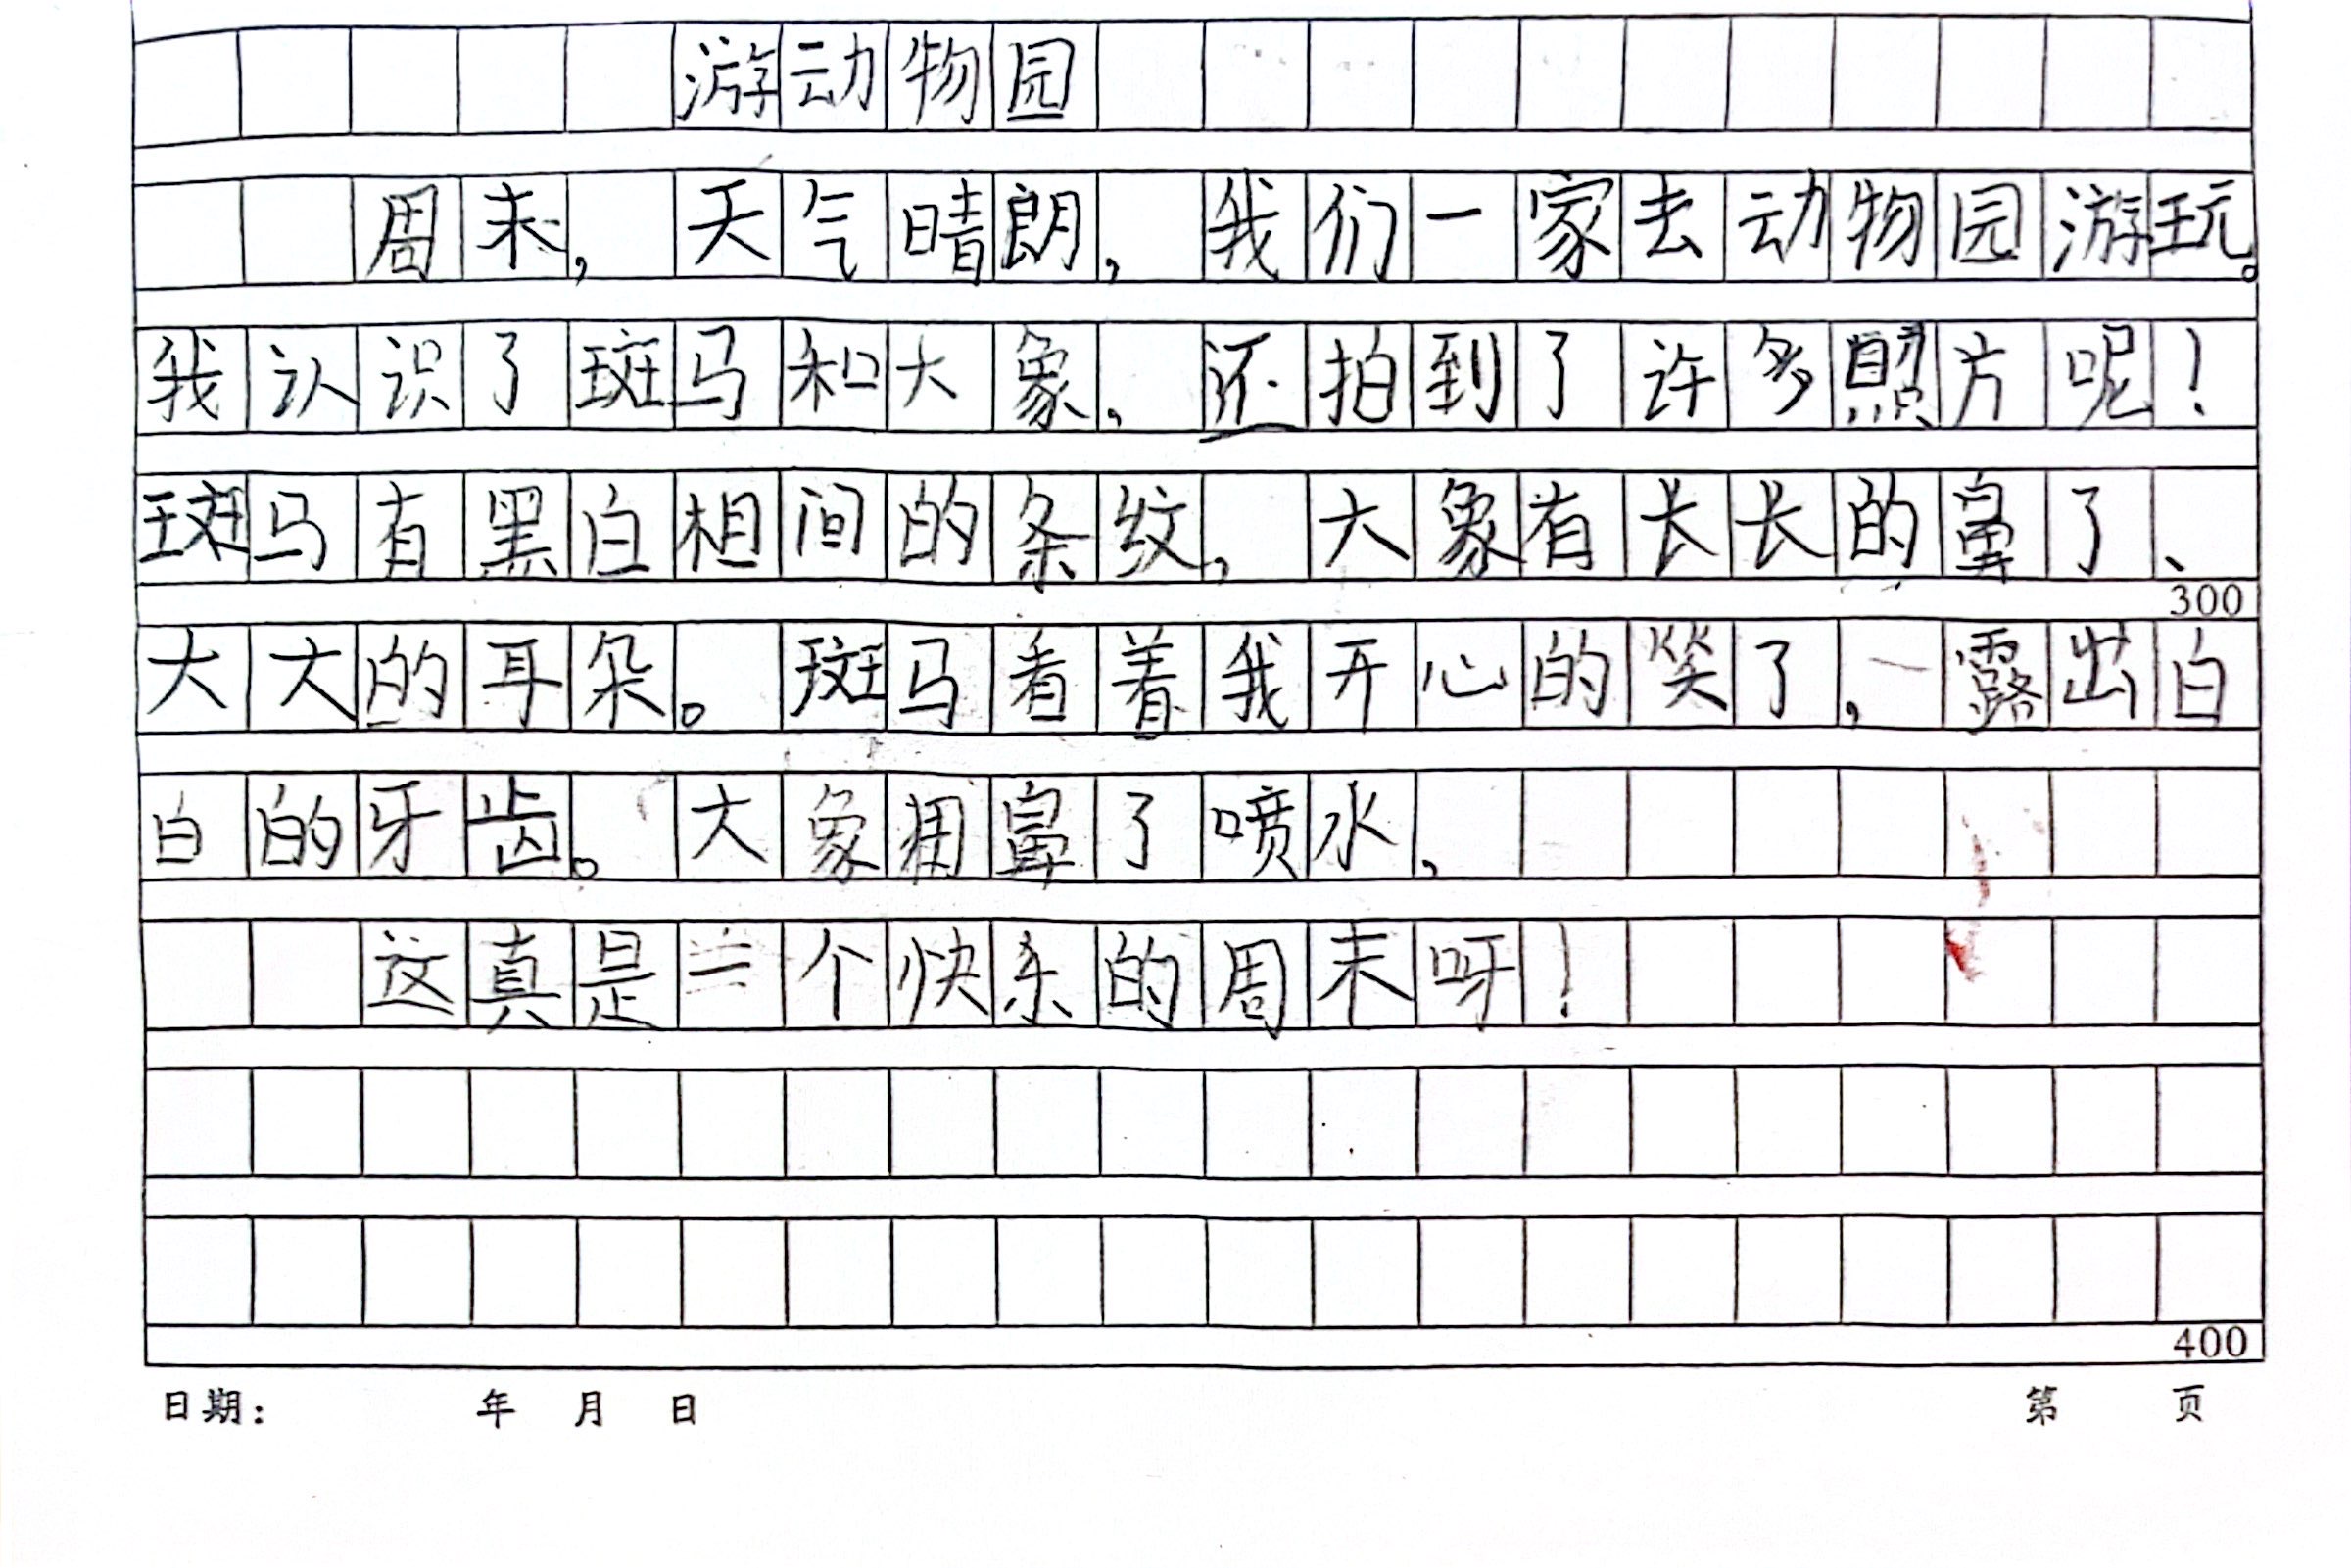 游动物园
周末，天气晴朗，我们一家去动物园游玩。
我认识了斑马和大象，还拍到了许多照片呢！
斑马有黑白相间的条纹，大象有长长的鼻了、
300
大大的耳朵。斑马看着我开心的笑了，露出白
白的牙齿。大象用鼻了喷水，
这真是一个快乐的周末呀！
400
日期： 年 月 日 第 页